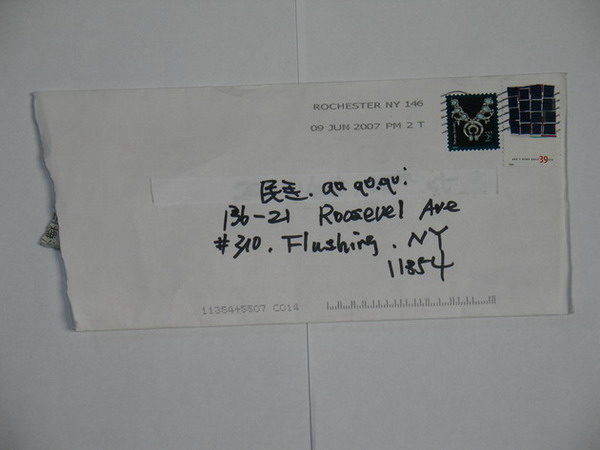 ROCHESTER NY 146
09 JUN 2007 PM 2 T
39
民主. qu qu.qu:
136-21 Roosevel Ave
#310. Flushing. NY
11854
11354+5507 C014